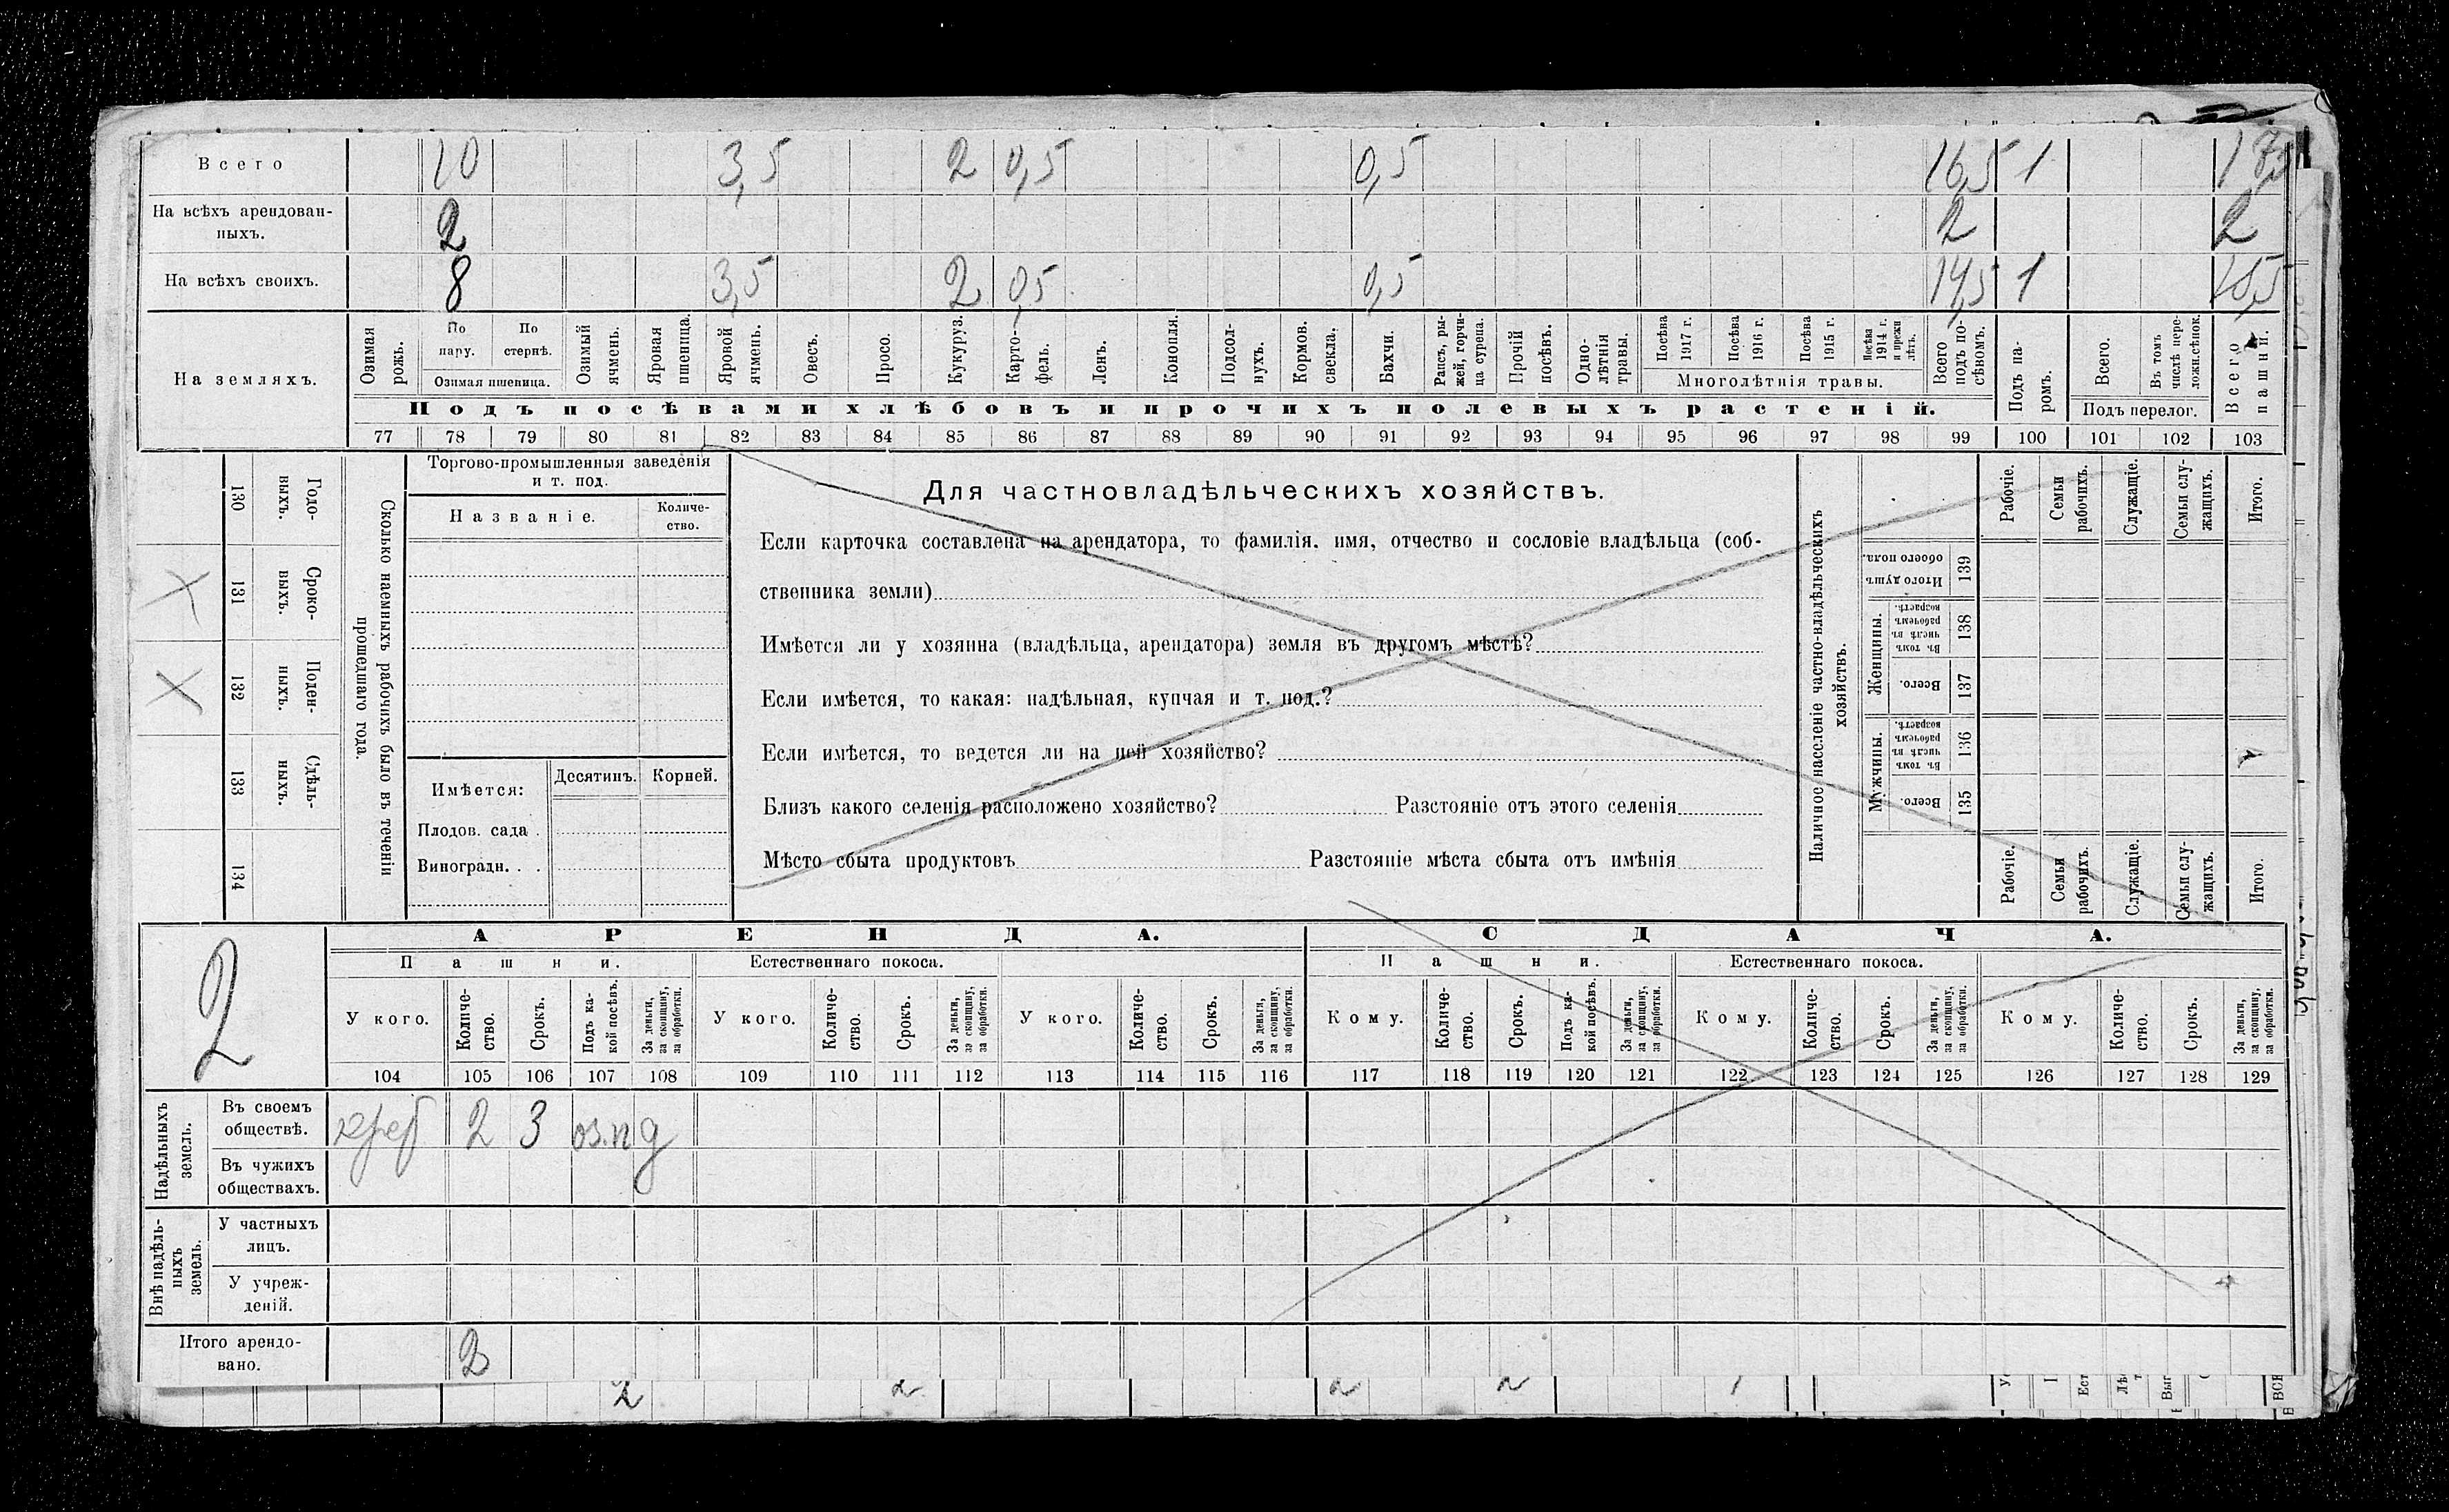 Всего 10 3,5 2 0,5 0,5 16,5 1
На всѣхъ арендован-
ныхъ. 2 2 2
На всѣхъ своихъ. 8 3,5 2 0,5 0,5 14,5 1 15,5
На земляхъ.
Озимая рожь.
По пару.
По стернѣ.
Озимая пшеница.
Озимый ячмень.
Яровая пшеница.
Яровой ячмень.
Овесъ.
Просо.
Кукуруз.
Карто-
фель.
Ленъ.
Конопля.
Подсол-
нухъ.
Кормов.
свекла.
Бахчи.
Рапсъ, ры-
жей, горчи-
ца сурепа.
Прочій
посѣвъ.
Одно-
лѣтнія
травы.
Посѣва
1917 г.
Посѣва
1916 г.
Посѣва
1915 г.
Посѣва
1914 г.
и прежн
лѣтъ.
Многолѣтнія травы.
Всего
подъ по-
сѣвомъ.
Подъ па-
ромъ.
Всего.
Въ томъ
числѣ пере-
ложн.сѣнок.
Подъ перелог.
Всего
пашни.
Подъ посѣвами хлѣбовъ и прочихъ полевыхъ растеній.
77 78 79 80 81 82 83 84 85 86 87 88 89 90 91 92 93 94 95 96 97 98 99 100 101 102 103
130 Годо-
выхъ.
131 Сроко-
выхъ.
132 Поден-
ныхъ.
133 Сдѣль-
ныхъ.
134
Сколько наемныхъ рабочихъ было въ теченіи
прошедшаго года.
Торгово-промышленныя заведенія
и т. под.
Названіе.
Количе-
ство.
Имѣется: Десятинъ. Корней.
Плодов. сада .
Виноградн. . .
Для частновладѣльческихъ хозяйствъ.
Если карточка составлена на арендатора, то фамилія. имя, отчество и сословіе владѣльца (соб-
ственника земли)
Имѣется ли у хозяина (владѣльца, арендатора) земля въ другомъ мѣстѣ?
Если имѣется, то какая: надѣльная, купчая и т. под.?
Если имѣется, то ведется ли на ней хозяйство?
Близъ какого селенія расположено хозяйство? Разстояніе отъ этого селенія
Мѣсто сбыта продуктовъ Разстояніе мѣста сбыта отъ имѣнія
Наличное населеніе частно-владѣльческихъ
хозяйствъ.
Рабочіе.
Семьи
рабочихъ.
Служащіе.
Семьи слу-
жащихъ.
Итого.
Итого душъ
обоего пола. 139
Женщины.
Въ томъ
числѣ въ
рабочемъ
возрастѣ. 138
Всего. 137
Мужчины.
Въ томъ
числѣ въ
рабочемъ
возрастѣ. 136
Всего. 135
Рабочіе.
Семьи
рабочихъ.
Служащіе.
Семьи слу-
жащихъ.
Итого.
2
АРЕНДА. СДАЧА.
Пашни. Естественнаго покоса. Пашни. Естественнаго покоса.
У кого.
Количе-
ство.
Срокъ.
Подъ ка-
кой посѣвъ.
За деньги,
за скопщину,
за обработки.
У кого.
Количе-
ство.
Срокъ.
За деньги,
за скопщину,
за обработки.
У кого.
Количе-
ство.
Срокъ.
За деньги,
за скопщину,
за обработки.
Кому.
Количе-
ство.
Срокъ.
Подъ ка-
кой посѣвъ.
За деньги,
за скопщину,
за обработки.
Кому.
Количе-
ство.
Срокъ.
За деньги,
за скопщину,
за обработки.
Кому.
Количе-
ство.
Срокъ.
За деньги,
за скопщину,
за обработки.
104 105 106 107 108 109 110 111 112 113 114 115 116 117 118 119 120 121 122 123 124 125 126 127 128 129
Надѣльныхъ
земель.
Въ своемъ
обществѣ. 2 3 оз.п д
Въ чужихъ
обществахъ.
Внѣ надѣль-
ныхъ
земель.
У частныхъ
лицъ.
У учреж-
деній.
Итого арендо-
вано. 2
2 2 2 2 1